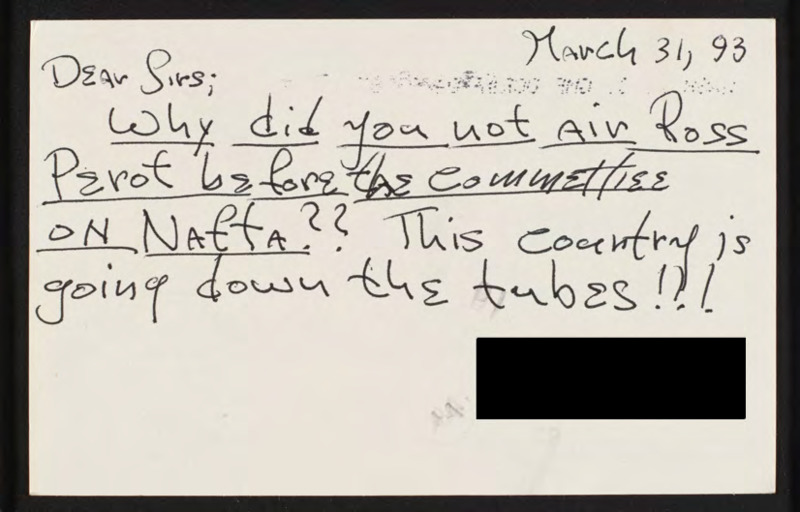 March 31, 93
Dear Sirs;
Why did you not air Ross
Perot before the Committiee
on Nafta?? This country is
going down the tubes!!!